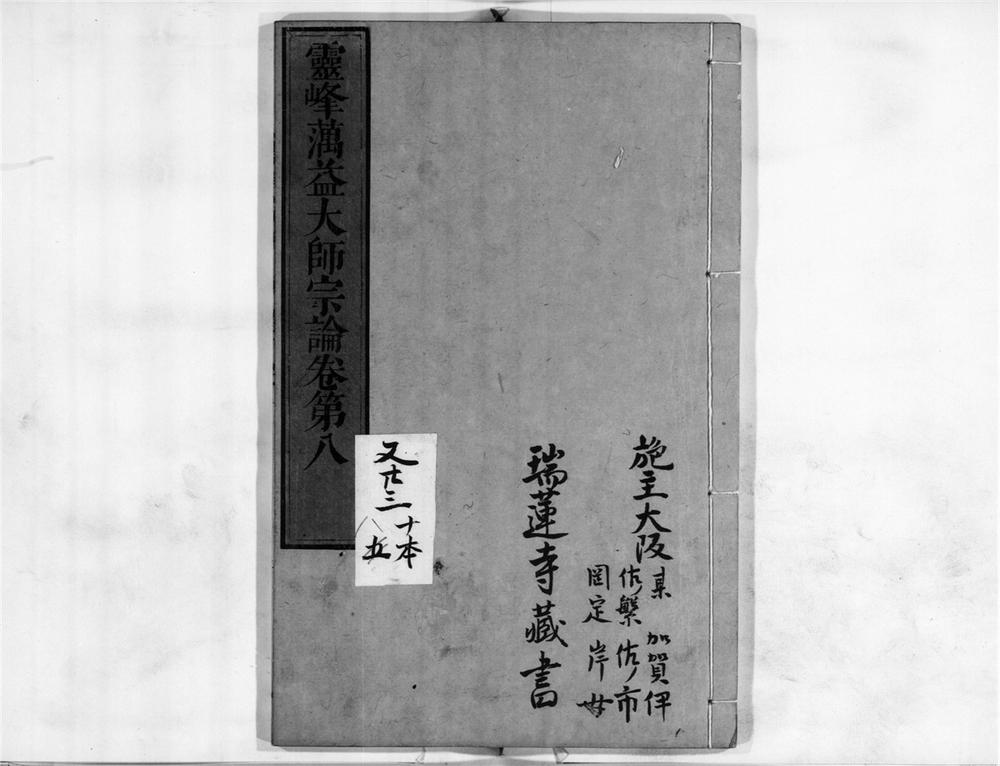 施主大阪
某 加賀伊
佐繁 佐市
岡定 岸母
瑞蓮寺藏書
靈峰蕅益大師宗論卷第八
又廿三
十本
八
五